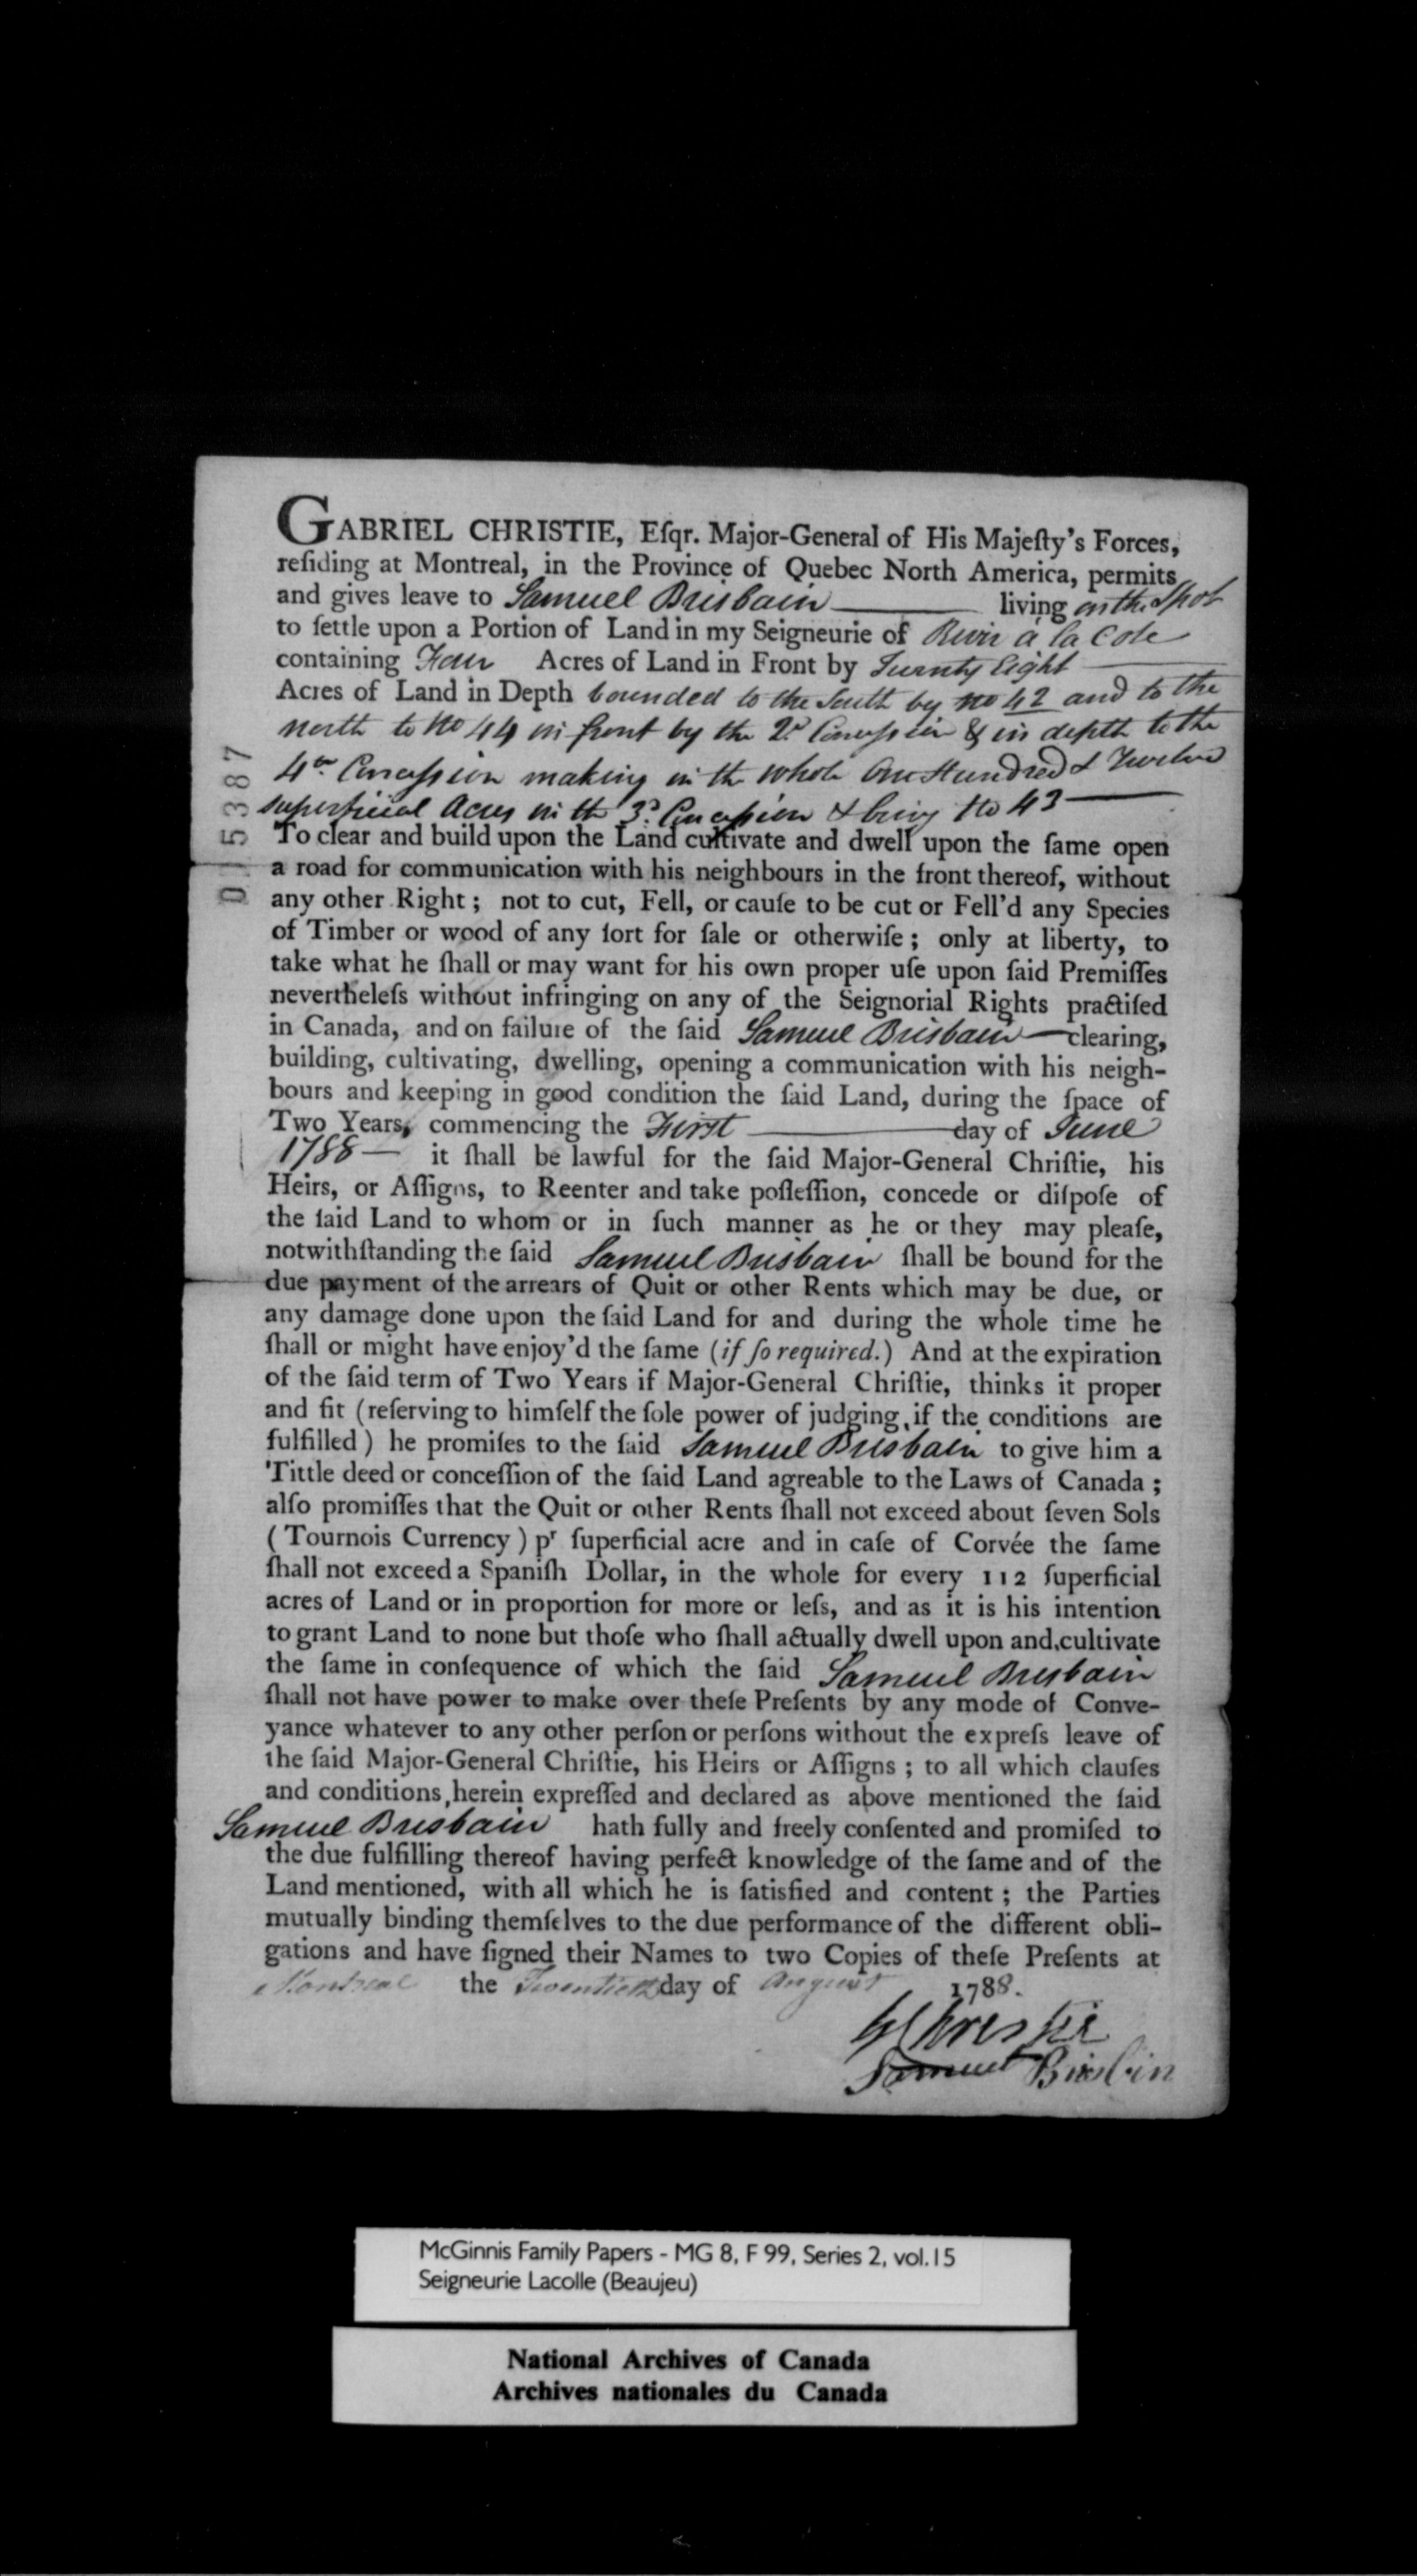 GABRIEL CHRISTIE, Eſqr. Major-General of His Majeſty's Forces,
reſiding at Montreal, in the Province of Quebec North America, permits
and gives leave to Samuel Brisbain living on the Spot
to ſettle upon a Portion of Land in my Seigneurie of Rivir a la Cole
containing Four Acres of Land in Front by Twenty Eight
Acres of Land in Depth bounded to the South by no 42 and to the
north to No 44 in front by the 2d Concession & in depth to the
4th Concession making in the whole One Hundred & Twelve
superficial Acres in the 3d Concession & being No 43
To clear and build upon the Land cultivate and dwell upon the ſame open
a road for communication with his neighbours in the front thereof, without
any other Right; not to cut, Fell, or cauſe to be cut or Fell'd any Species
of Timber or wood of any ſort for ſale or otherwiſe; only at liberty, to
take what he ſhall or may want for his own proper uſe upon ſaid Premiſſes
nevertheleſs without infringing on any of the Seignorial Rights practiſed
in Canada, and on failure of the ſaid Samuel Brisbain clearing,
building, cultivating, dwelling, opening a communication with his neigh-
bours and keeping in good condition the ſaid Land, during the ſpace of
Two Years, commencing the First day of June
1788 — it ſhall be lawful for the ſaid Major-General Chriſtie, his
Heirs, or Aſſigns, to Reenter and take poſſeſſion, concede or diſpoſe of
the ſaid Land to whom or in ſuch manner as he or they may pleaſe,
notwithſtanding the ſaid Samuel Brisbain ſhall be bound for the
due payment of the arrears of Quit or other Rents which may be due, or
any damage done upon the ſaid Land for and during the whole time he
ſhall or might have enjoy'd the ſame (if ſo required.) And at the expiration
of the ſaid term of Two Years if Major-General Chriſtie, thinks it proper
and fit (reſerving to himſelf the ſole power of judging, if the conditions are
fulfilled) he promiſes to the ſaid Samuel Brisbain to give him a
Tittle deed or conceſſion of the ſaid Land agreable to the Laws of Canada;
alſo promiſſes that the Quit or other Rents ſhall not exceed about ſeven Sols
(Tournois Currency) pr ſuperficial acre and in caſe of Corvée the ſame
ſhall not exceed a Spaniſh Dollar, in the whole for every 112 ſuperficial
acres of Land or in proportion for more or leſs, and as it is his intention
to grant Land to none but thoſe who ſhall actually dwell upon and,cultivate
the ſame in conſequence of which the ſaid Samuel Brisbain
ſhall not have power to make over theſe Preſents by any mode of Conve-
yance whatever to any other perſon or perſons without the expreſs leave of
the ſaid Major-General Chriſtie, his Heirs or Aſſigns; to all which clauſes
and conditions,herein expreſſed and declared as above mentioned the ſaid
Samuel Brisbain hath fully and freely conſented and promiſed to
the due fulfilling thereof having perfect knowledge of the ſame and of the
Land mentioned, with all which he is ſatisfied and content; the Parties
mutually binding themſelves to the due performance of the different obli-
gations and have ſigned their Names to two Copies of theſe Preſents at
Montreal the Twentieth day of August 1788.
G Christie
Samuel Brisbin
015387
McGinnis Family Papers - MG 8, F 99, Series 2, vol.15
Seigneurie Lacolle (Beaujeu)
National Archives of Canada
Archives nationales du Canada